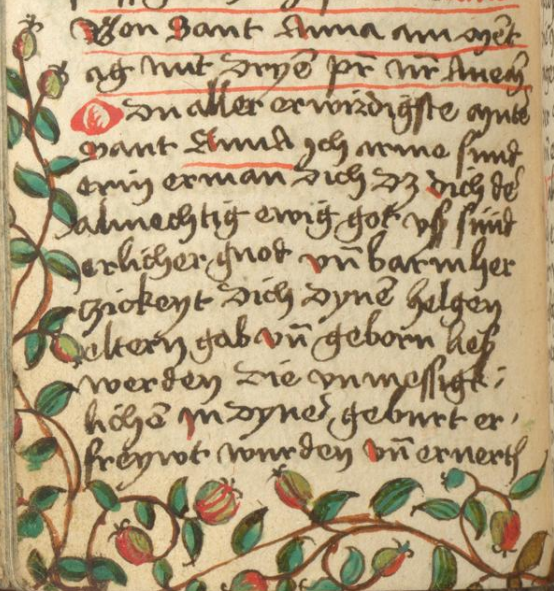 Von Sant Anna am zist
ag mit dryē pr̄ nr̄ Auem
O du aller erwirdigste mute
Sant Anna ich arme sund
erin erman dich dz dich dē
almechtig ewig got vß sund
erlicher gnod vn̄ barmher
zickeyt dich dynē helgen
eltern gab vn̄ geborn ließ
werden die vnmessigk
lichē in dyner geburt er
freywt wurden vn̄ ernerth